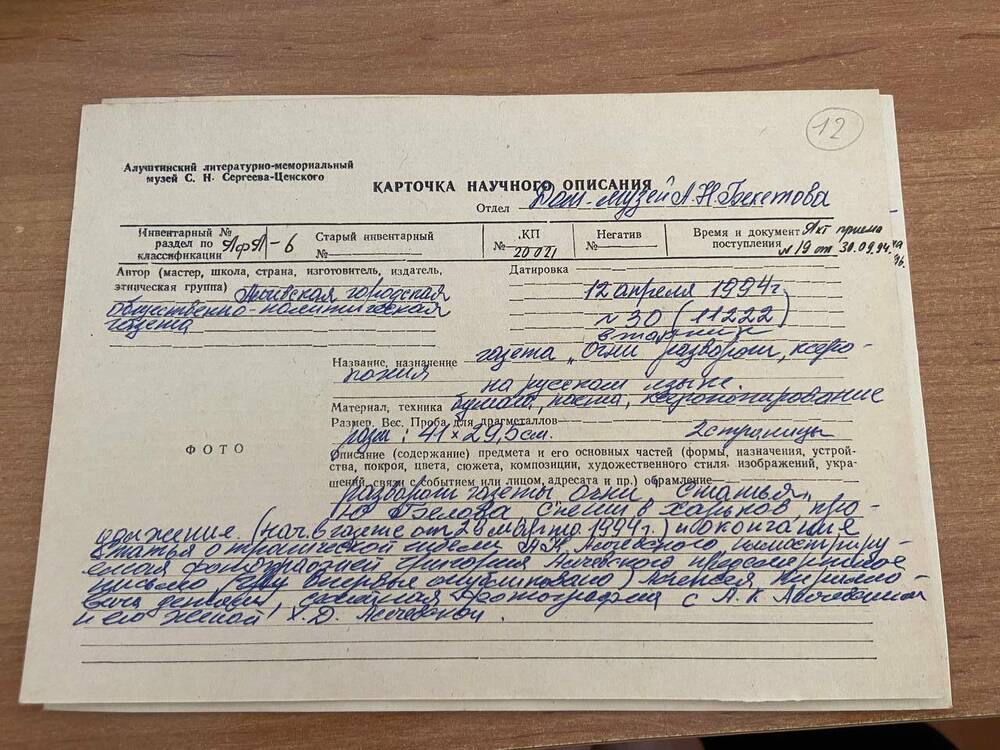 12
Алуштинский литературно-мемориальный
музей С. Н. Сергеева-Ценского
КАРТОЧКА НАУЧНОГО ОПИСАНИЯ
Отдел Дом-музей А Н Бекетова
Инвентарный №
раздел по
классификации АфЛ-6
Старый инвентарный
№
КП
№ 20021
Негатив
№
Время и документ Акт приема
поступления № 19 от 30.09.94
Автор (мастер, школа, страна, изготовитель, издатель,
этническая группа) Алчевская городская
общественно-политическая
газета
Датировка
12 апреля 1994г.
№ 30 (11222)
вторник
Название, назначение газета „Огни разворот, ксеро-
копия на русском языке.
Материал, техника бумага, паста, ксерокопирование
Размер. Вес. Проба для драгметаллов
разм: 41×29,5 см. 2 страницы
ФОТО
Описание (содержание) предмета и его основных частей (формы, назначения, устрой-
ства, покроя, цвета, сюжета, композиции, художественного стиля изображений, укра-
шений, связи с событием или лицом, адресата и пр.) обрамление
разворот газеты Огни статья
Ю Белова в Харьков, про-
должение. (нач. в газете от марта 1994г.) и окончание
статья о трагической гибели А.К. Алчевского иллюстриру-
емая фотографией Григория Алчевского предсмертное
письмо впервые опубликовано) Алексея Кирилло-
вича фотография с А. К Алчевским
и его женой Х. Д. Алчевской.